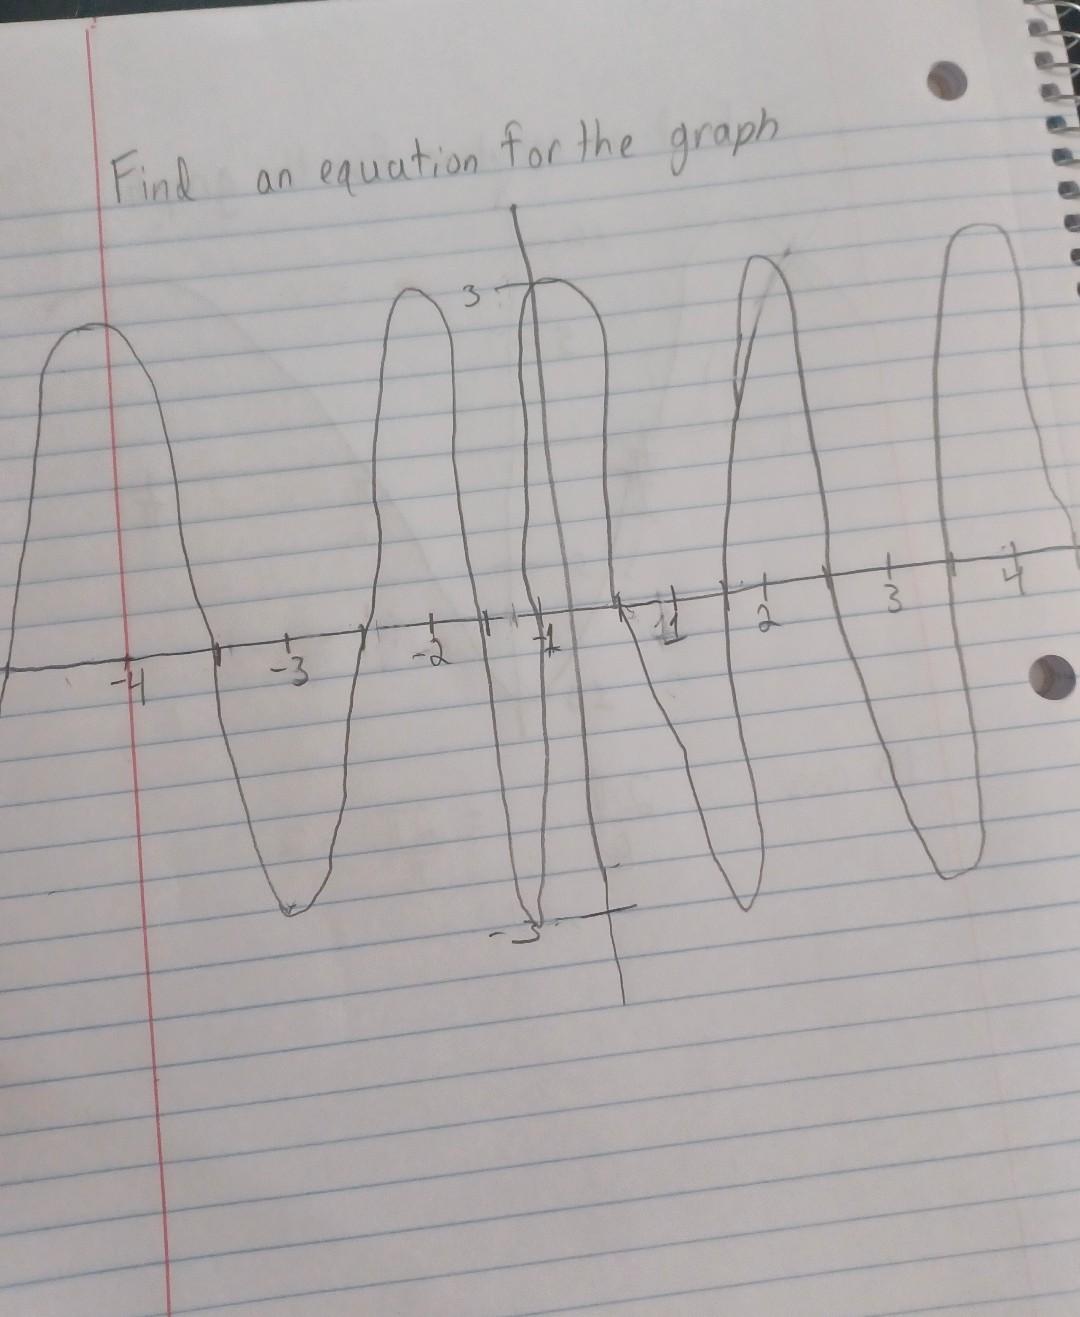 Find an equation for the graph
3
-4 -3 -2 -1 1 2 3 4
-3